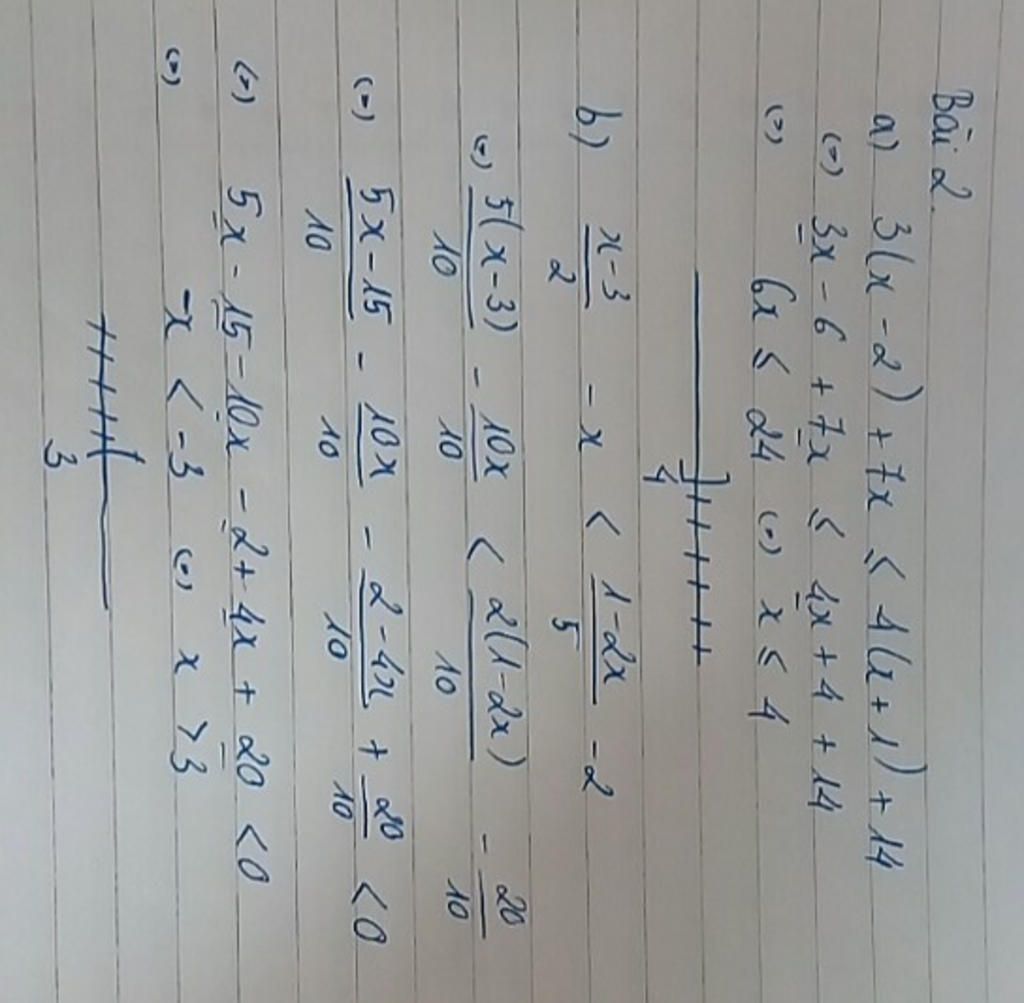 Bài 2.
a) 3(x - 2) + 7x ≤ 4(x + 1) + 14
(=) 3x - 6 + 7x ≤ 4x + 4 + 14
(=) 6x ≤ 24 (=) x ≤ 4
4
b) \frac{x-3}{2} - x < \frac{1-2x}{5} - 2
(=) \frac{5(x-3)}{10} - \frac{10x}{10} < \frac{2(1-2x)}{10} - \frac{20}{10}
(=) \frac{5x-15}{10} - \frac{10x}{10} - \frac{2-4x}{10} + \frac{20}{10} < 0
(=) 5x - 15 - 10x - 2 + 4x + 20 < 0
(=) -x < -3 (=) x > 3
3